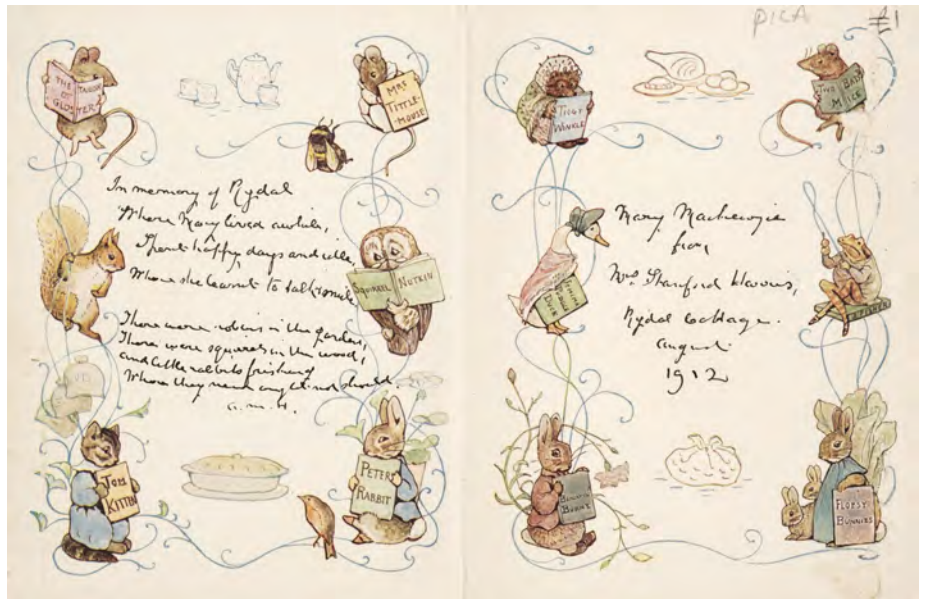 PICA
£1
THE TAILOR
OF
GLOSTER
MRS
TITTLE-
MOUSE
In memory of Rydal
Where Mary lived awhile,
Spent happy days and idle,
Where she learnt to talk & smile
SQUIRREL NUTKIN
There were robins in the garden,
There were squirrels in the wood,
and little rabbits frisking
Where they never any should.
a. m. H.
TOM
KITTEN
PETER
RABBIT
TIGGY
WINKLE
TWO BAD
MICE
Mary Mackenzie
from
Mrs Stanford Harris,
Rydal Cottage.
august
1912
JEMIMA
PUDDLE
DUCK
J. FISHER
BENJAMIN
BUNNY
FLOPSY
BUNNIES